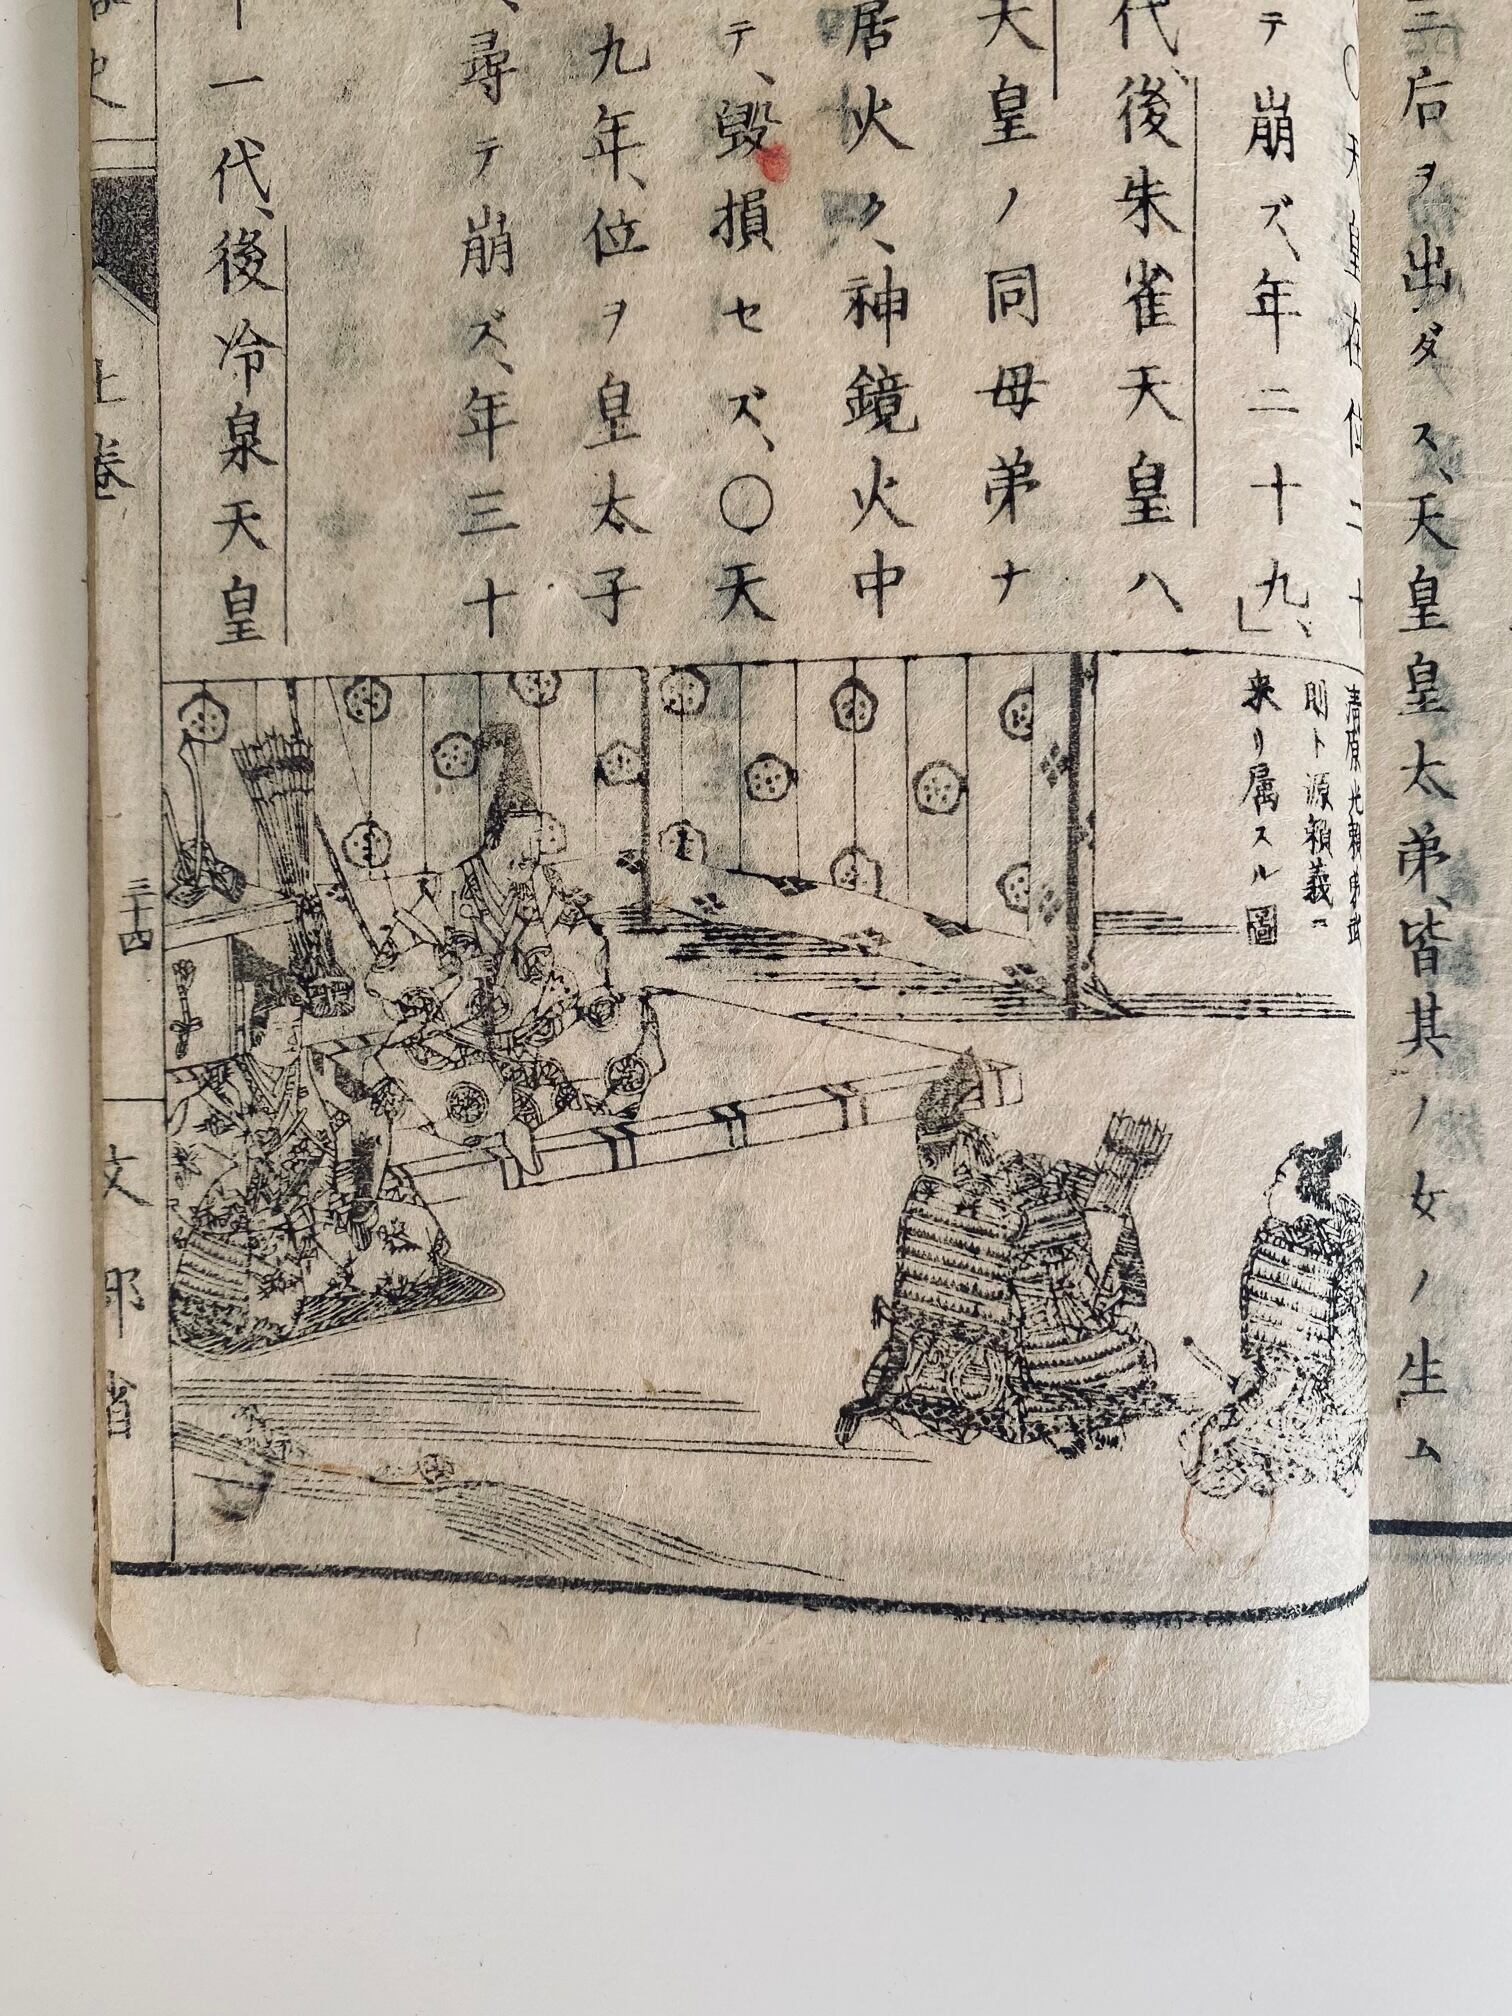 三后ヲ出ダス、天皇皇太弟、皆其ノ女ノ生ム
〇天皇在位二十
テ崩ズ、年二十九、」
代、後朱雀天皇ハ、
天皇ノ同母弟ナ
居火ク、神鏡火中
テ、毀損セズ、〇天
九年、位ヲ皇太子
尋テ崩ズ、年三十
十一代、後冷泉天皇
清原光頼弟武
則ト源頼義ニ
来リ属スル圖
史
上巻
三十四
文部省